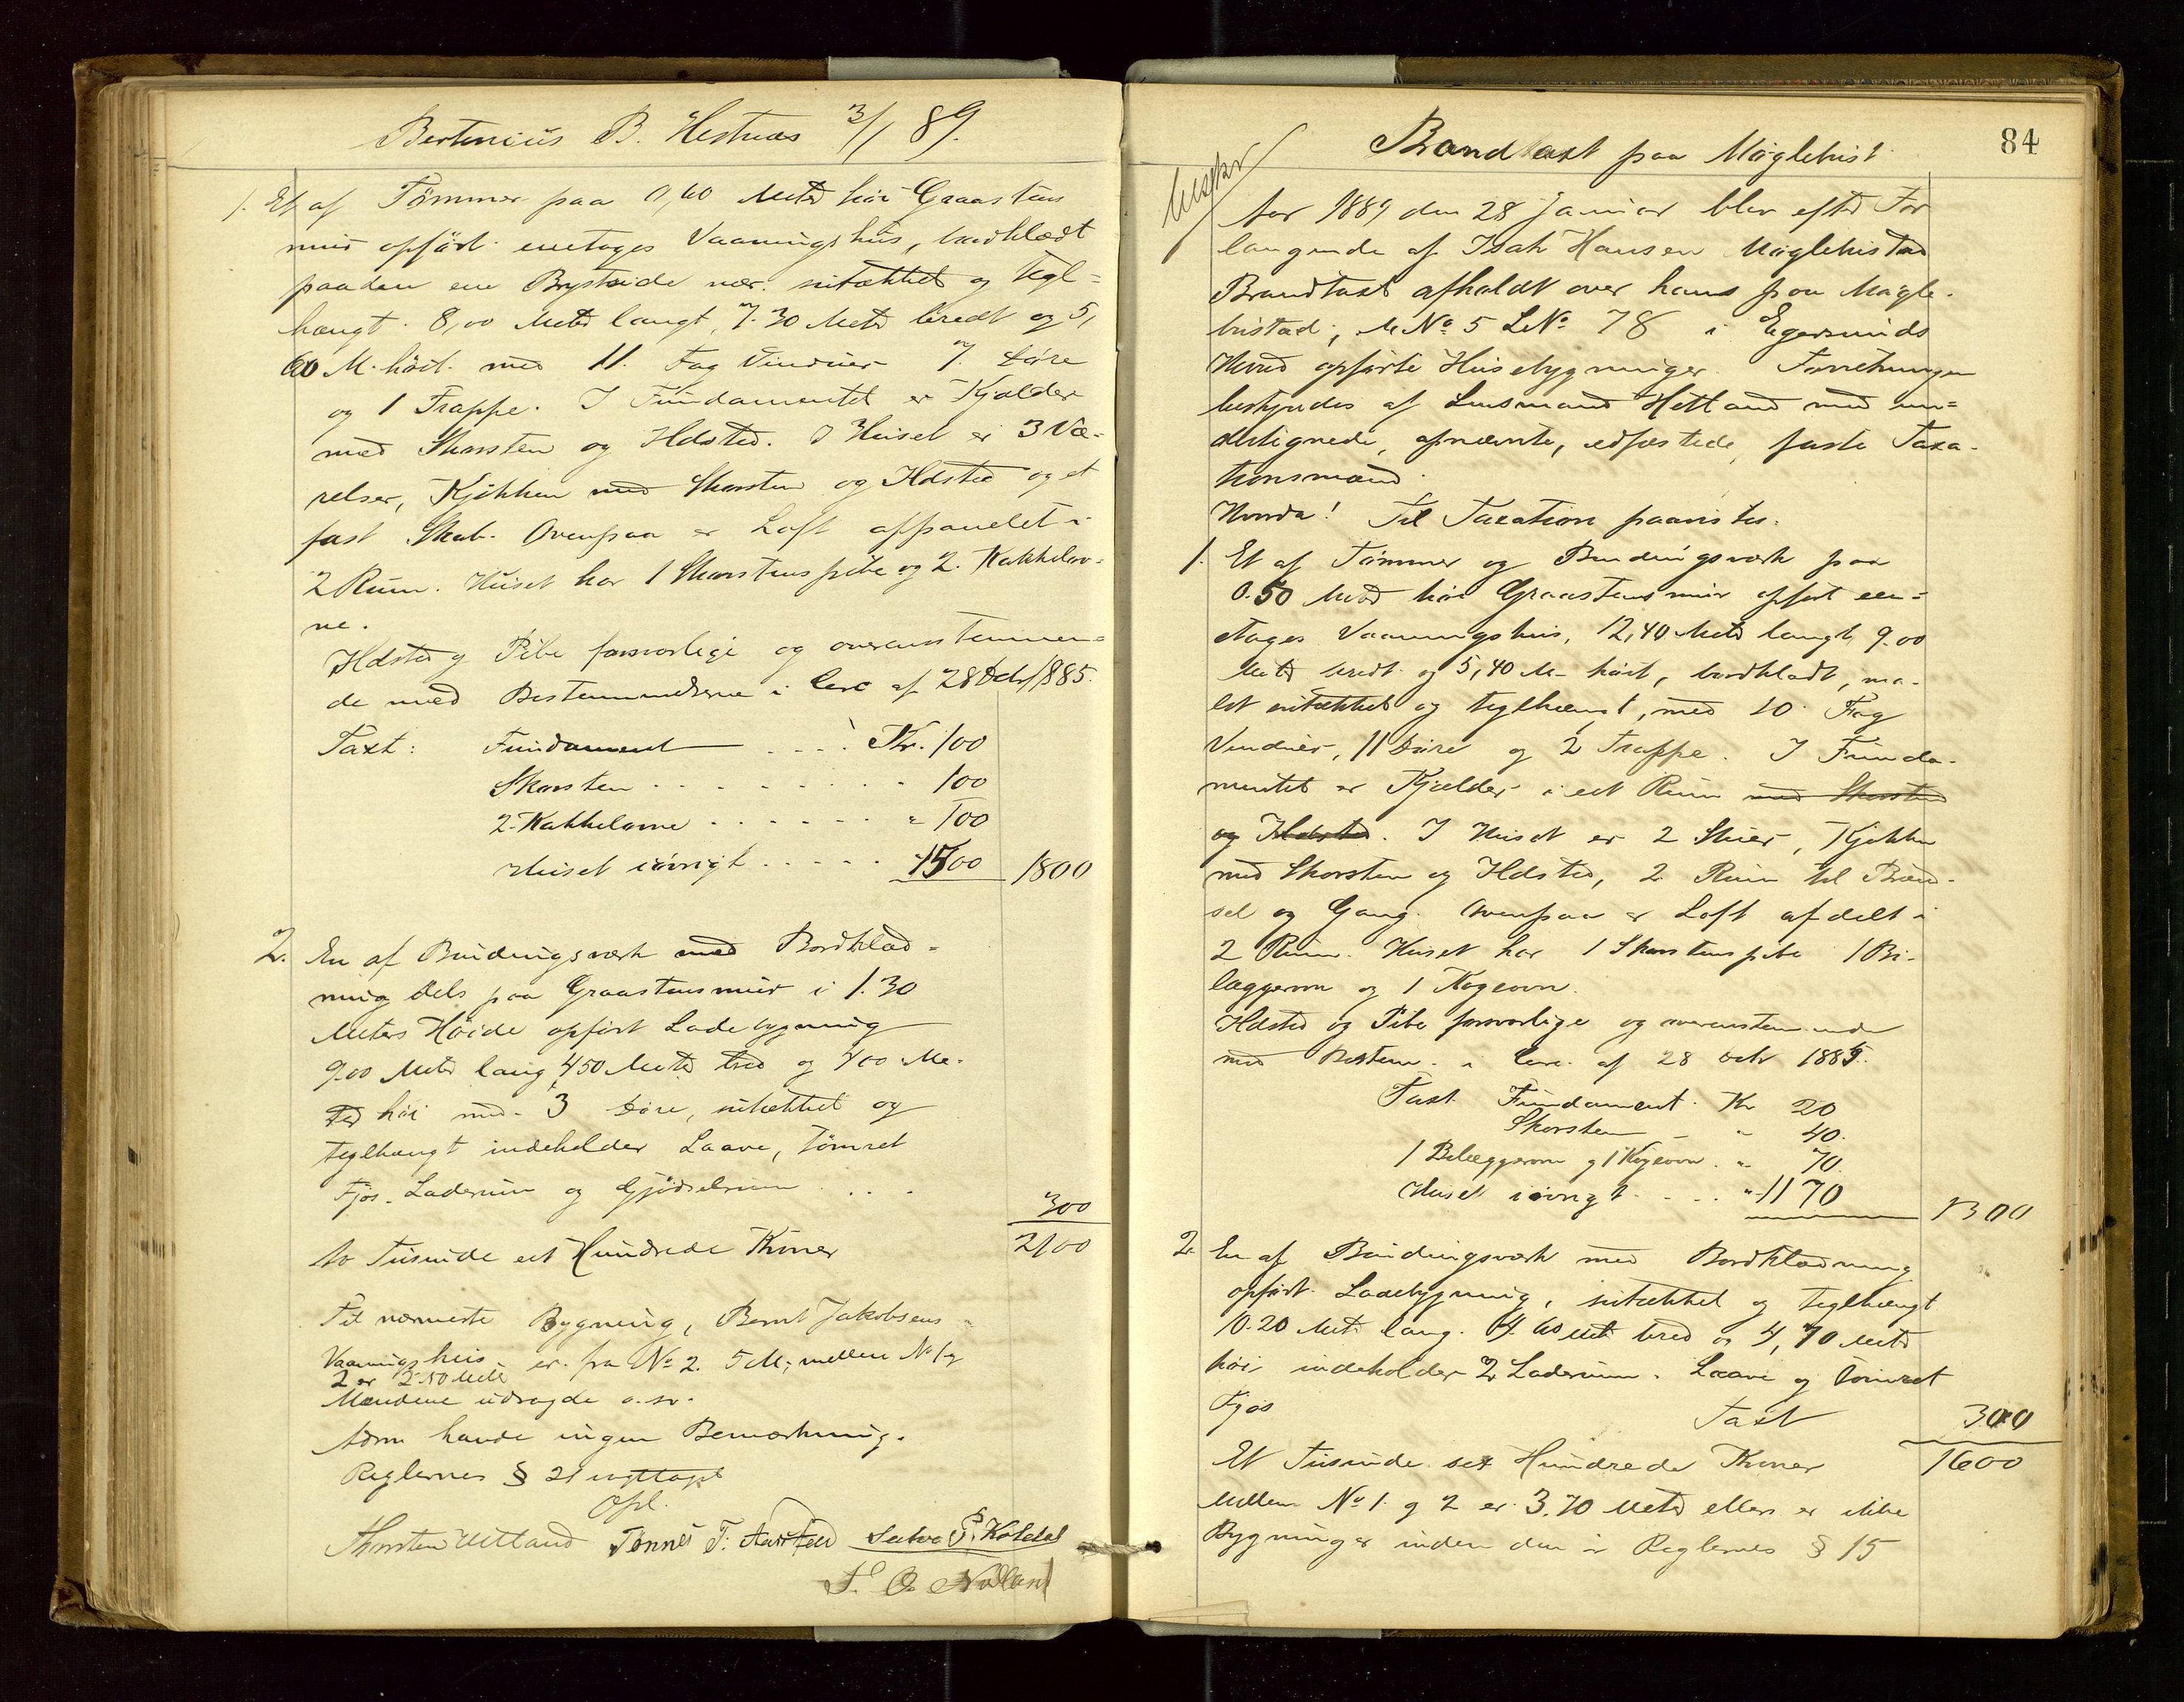 Bertinius B. Hestnes 3/1 89.
1. Et af Tømmer paa 0,60 Meter høi Graastens
mur opført enetages Vaaningshus, bordklædt
paa den ene Brystside nær. nitækket og tegl=
hængt. 8,00 Meter langt, 7.30 Meter bredt og 5,
60 M. høit. med 11. Fag Vinduer 7. Døre
og 1 Trappe. I Fundamentet er Kjælder
med Skorsten og Ildsted. I Huset er 3 Væ-
relser, Kjøkken med Skorsten og Ildsted og et
fast Skab. Ovenpaa er Loft afpanelet i
2 Rum. Huset har 1 Skorstenspibe og 2. Kakkelov-
ne.
Ildsted og Pibe forsvarlige og overensstemmen=
de med Bestemmelserne i Circ af 28 Octr 1885.
Taxt: Fundament - - - Kr. 100
Skorsten - - - - - - 100
2. Kakkelovne - - - - - " 100
Huset iøvrigt - - - - - 1500 1800
2. En af Bindingsværk med Bordklæd-
ning dels paa Graastensmur i 1.30
Meters Høide opført Ladebygning
9.00 Meter lang, 4.50 Meter bred og 4.00 Me-
ter høi med 3 Døre, nitækket og
teglhængt indeholder Laave, tømret
Fjøs. Laderum og Gjødselrum - - - 300
to Tusinde et Hundrede Kroner 2100
Til nærmeste Bygning, Bernt Jakobsens
Vaaningshus er fra No 2. 5 M; mellem No 1 og
2 er 2.50 Meter
Mændene udsagde o.sv.
Adm havde ingen Bemærkning.
Reglernes § 21 iagttaget
Opl.
Thorsten Hetland Tønnes T. Aarstad S. Kolldal
T. O. Nodland
84
Brandtaxt paa Møglebust
Aar 1889 den 28 Januar blev efter For
langende af Isak Hansen Møglebustad
Brandtaxt afholdt over hans paa Møgle-
bustad, M No 5 L No 78 i Egersunds
Herred opførte Husebygninger. Forretningen
bestyredes af Lensmand Hetland med un=
dertegnede, opnævnte, edfæstede, faste Taxa-
tionsmænd.
Hvorda! Til Taxation paavistes.
1. Et af Tømmer og Bindingsværk paa
0.50 Meter høi Graastensmur opført een=
etages Vaaningshus, 12,40 Meter langt, 9.00
Meter bredt og 5,40 M. høit, bordklædt, ma-
let nitækket og teglhængt, med 10 Fag
Vinduer, 11 Døre og 2 Trappe. I Funda-
mentet er Kjælder i eet Rum med Skorsten
og Ildsted. I Huset er 2 Stuer, Kjøkken
med Skorsten og Ildsted, 2 Rum til Brænd-
sel og Gang. Ovenpaa er Loft afdelt i
2 Rum. Huset har 1 Skorstenspibe 1 Bi-
læggerovn og 1 Kogeovn.
Ildsted og Pibe forsvarlige og overensstemmende
med Bestem. i Circ. af 28 Octr 1885.
Taxt Fundament. Kr 20
Skorsten - " 40.
1 Bilæggerovn og 1 Kogeovn. " 70
Huset iøvrigt - - - " 1170 1300
2. En af Bindingsværk med Bordklædning
opført Ladebygning, nitækket og teglhængt
10.20 Met. lang. 4.60 Met bred og 4,70 Meter
høi indeholder 2 Laderum. Laave og tømret
Fjøs Taxt 300
Et Tusinde sex Hundrede Kroner 1600
Mellem No 1. og 2 er 3.70 Meter ellers er ikke
Bygninger inden den i Reglernes § 15